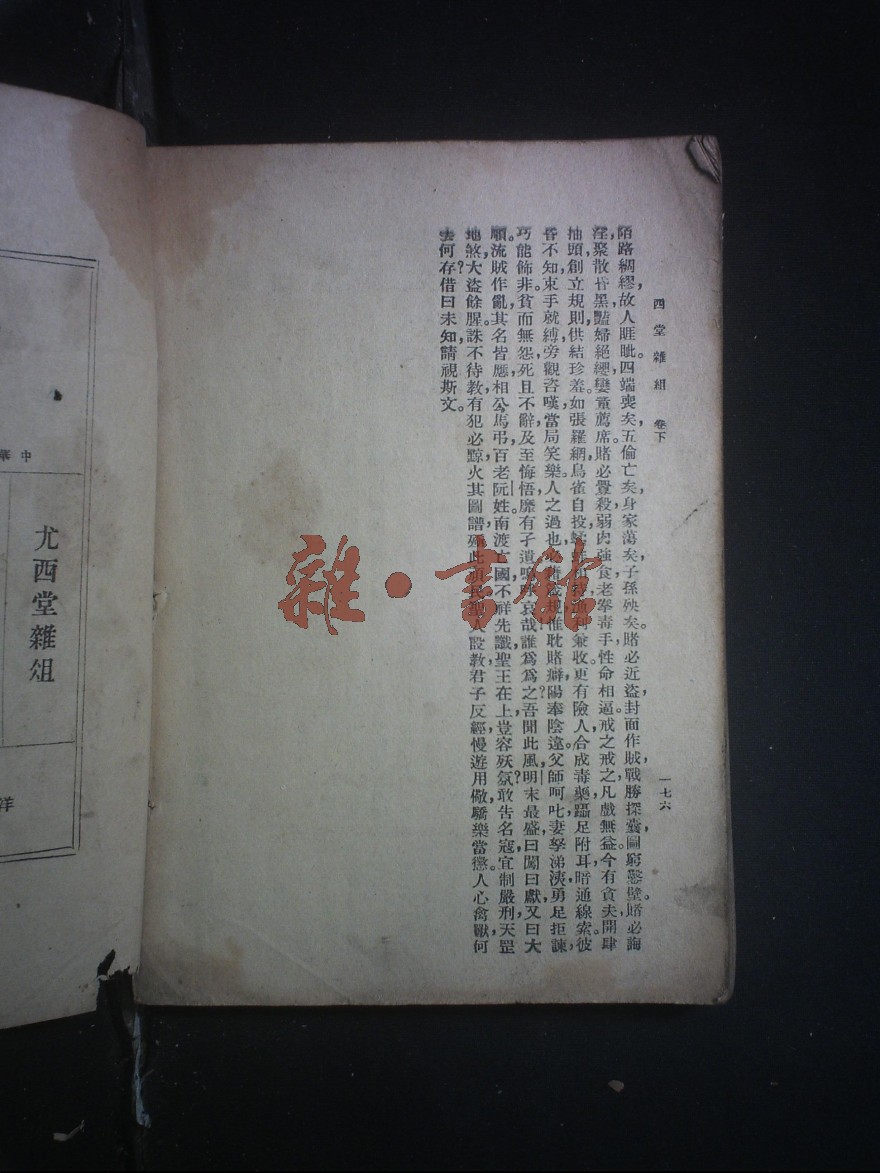 西堂雜組　卷下　一七六
陌路綢繆,故人睚眦。四端喪矣,五倫亡矣,身家蕩矣,子孫殃矣。賭必近盜,封面作賊,戰勝探囊,圖窮鑿壁。賭必誨
淫,聚散昏黑,豔婦絕纓,孌童薦席。賭必釁殺,弱肉強食,老拳毒手,性命相逼。戒之戒之,凡戲無益。今有貪夫,開肆
抽頭,創立規則,供結珍羞。如張羅網,鳥雀自投,兼收。更有險人,合成毒藥,躡足附耳,暗通線索。彼
昏不知,束手就縛,旁觀咨嘆,當局笑樂。人之過也,必規,惟耽賭癖,陽奉陰違。父師呵叱,妻孥涕洟,勇足拒諫,
巧能飾非。貧而無怨,死且不辭,及至悔悟,靡有孑遺。嗚呼哀哉!誰為為之?吾聞此風,明末最盛,曰闖曰獻,又曰大
順。流賊作亂,其名皆應,相公馬弔,百老阮姓。南渡亡國,不祥先讖,聖王在上,豈容妖氛?敢告名寇,宜制嚴刑,天罡
地煞,大盜餘腥。誅不待教,有犯必黥,火其圖譜,此設教,君子反經,慢遊用儆,驕樂當懲。人心禽獸,何
去何存?借曰未知,請視斯文。
雜·書館
尤西堂雜俎
中華
洋